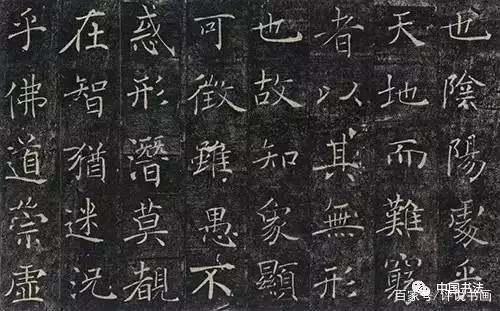 也陰陽處乎
天地而難窮
者以其無形
也故知象顯
可徵雖愚不
惑形潛莫覩
在智猶迷況
乎佛道崇虛
中国书法
百家号/评说书画